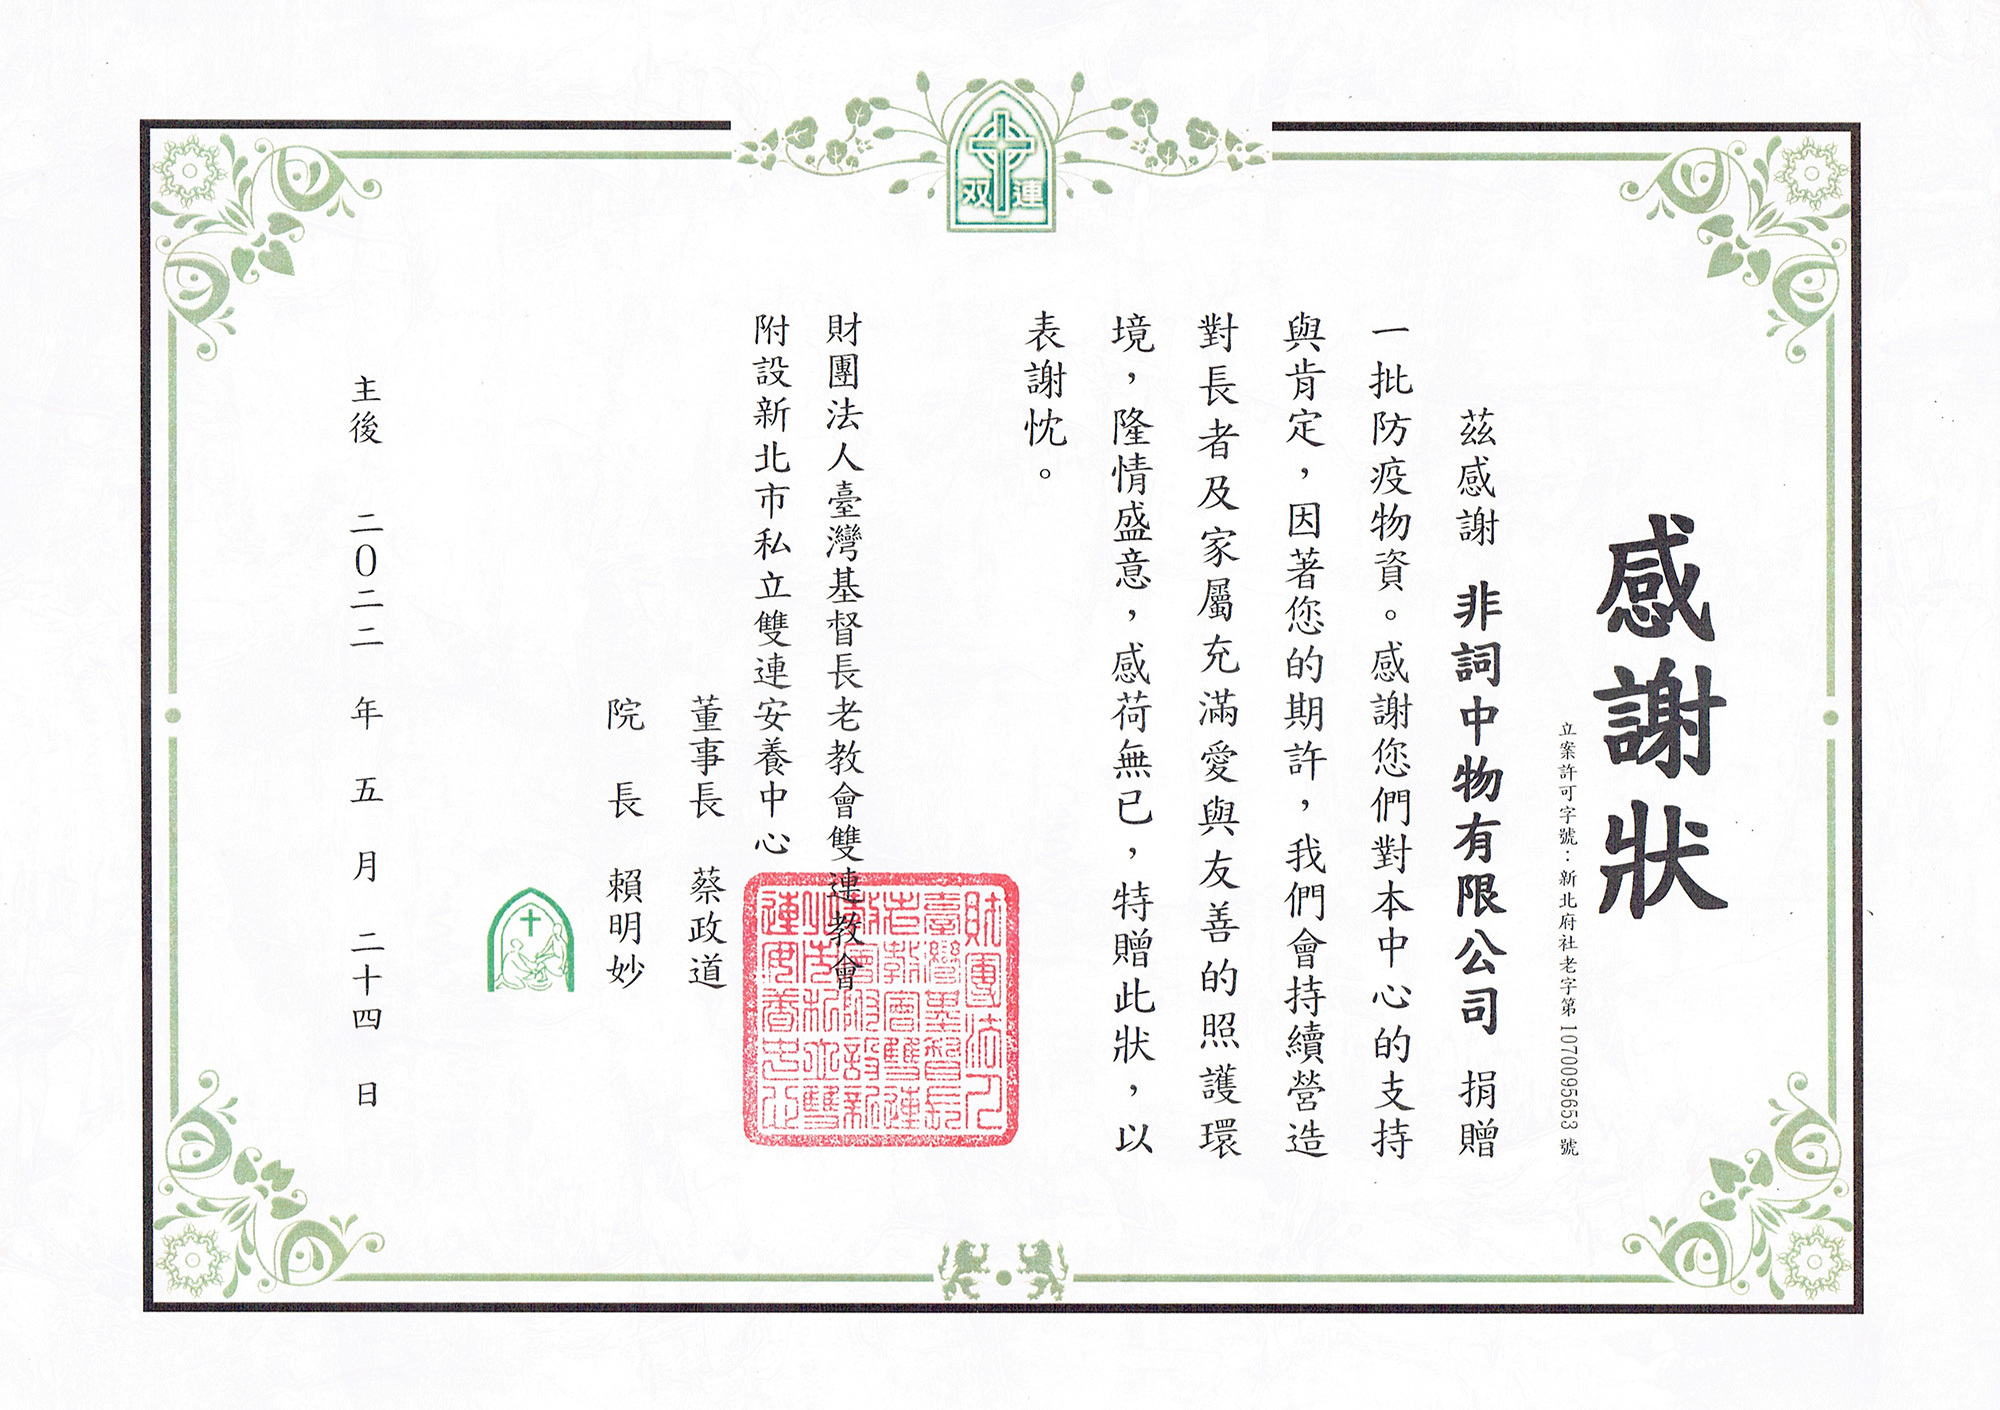 双連
感謝狀
立案許可字號：新北府社老字第1070095653號
茲感謝 非詞中物有限公司 捐贈
一批防疫物資。感謝您們對本中心的支持
與肯定，因著您的期許，我們會持續營造
對長者及家屬充滿愛與友善的照護環
境，隆情盛意，感荷無已，特贈此狀，以
表謝忱。
財團法人臺灣基督長老教會雙連教會
附設新北市私立雙連安養中心
董事長 蔡政道
院長 賴明妙
財團法人
臺灣基督長
老教會雙連
教會附設新
北市私立雙
連安養中心
主後 二0二二 年 五 月 二十四 日